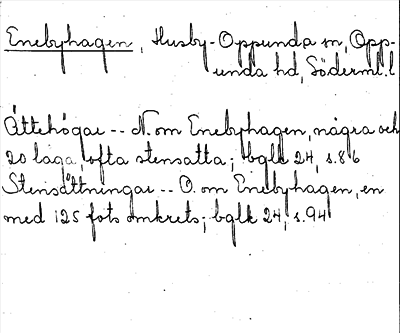 Enebyhagen, Husby-Oppunda sn, Opp-
unda hd, Söderml. l
Ättehögar -- N. om Enebyhagen, några och
20 låga, ofta stensatta; bglk 24, s. 86
Stensättningar -- O. om Enebyhagen, en
med 125 fots omkrets; bglk 24, s. 94